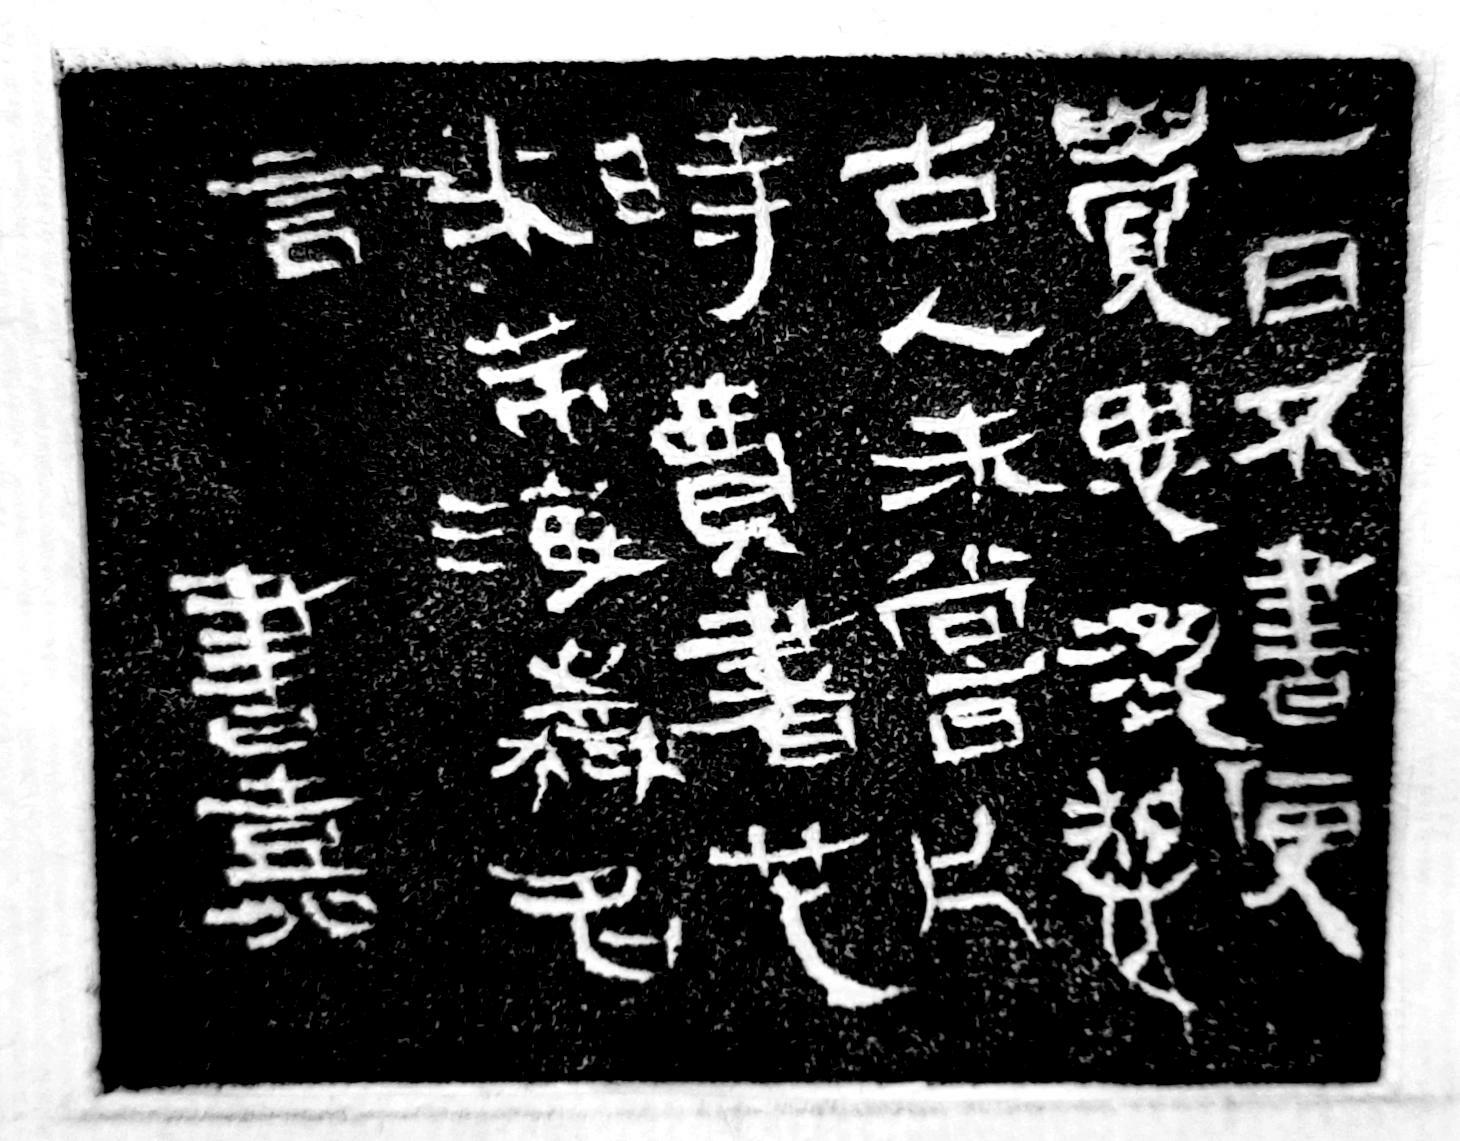 一日不書便
覺思澀想
古人未嘗片
時費書也
米芾海嶽名
言 書熹